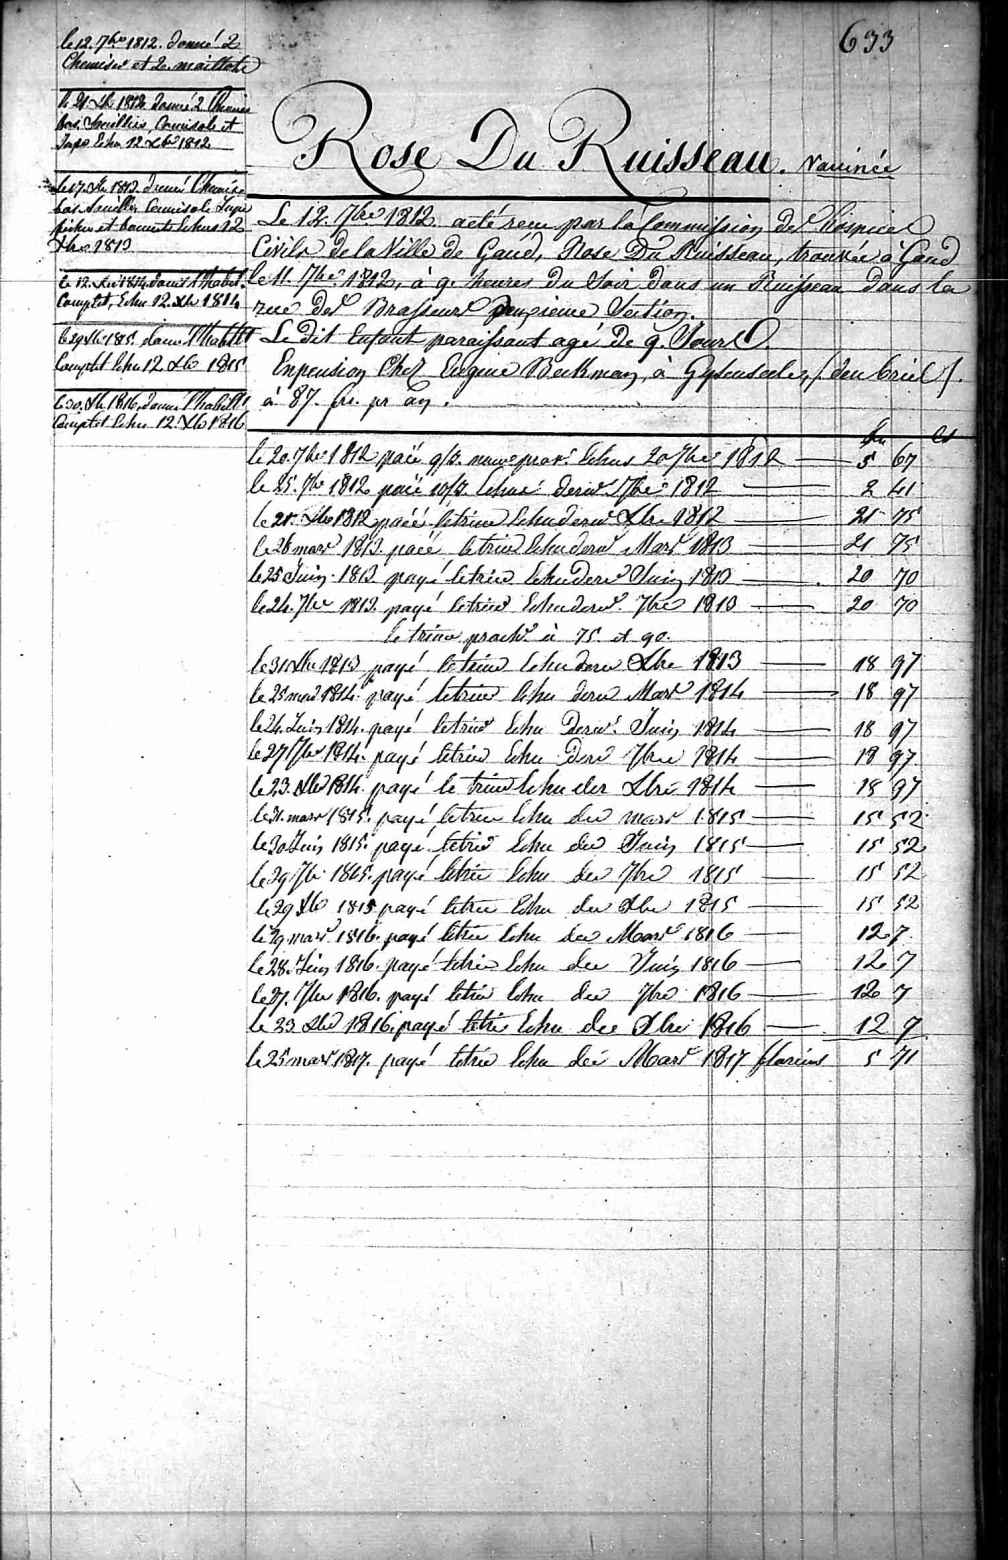 633
le 12. 7bre 1812. donné 2
Chemises et 2. maillots
le 21 Xbre 1812 donné 2 Chemises
bas, Souilliers, Camisole et
Jupe Echu 12 Xbre 1812
le 17 Xbre 1813. donné Chemise
bas Souilliers Camisole Jupe
fichu et bonnets Echus 12
Xbre 1813
le 12. Xbre 1814 donné l'habit.
Complet, Echu 12. Xbre 1814
le 29 Xbre 1815. donné l'habillt
Complet Echu 12 Xbre 1815
le 30. Xbre 1816. donné l'habillt
Complet Echu 12. Xbre 1816
Rose Du Ruisseau. Vaccinée
Le 12. 7bre 1812. acté reçu par la Commission des Hospices
Civils de la Ville de Gand, Rose Du Ruisseau, trouvée à Gand
le 11. 7bre 1812, à 9. heures du Soir dans un Ruisseau dans la
rue des Brasseurs Deuxieme Section.
Le dit Enfant paraissant agé de 9. Jours
Enpension Chez Eugene Beekman, à Gysenseele, / den briel /.
à 87. frs. pr an.
frs cs
le 20. 7bre 1812 paié 9/3. mois prov. Echus 20 7bre 1812 5 67
le 25. 7bre 1812 paié 10/3. Echus derer 7bre 1812 2 41
le 21. Xbre 1812 paié le trim Echu derer Xbre 1812 21 75
le 26 mars 1813. paié le trim Echu derer Mars 1813 21 75
le 25 Juin 1813 payé le trim Echu derer Juin 1813 20 70
le 24. 7bre 1813. payé le trim Echu derer 7bre 1813 20 70
le trim proch. à 75 et 90.
le 31 Xbre 1813 payé le trim Echu derer Xbre 1813 18 97
le 25 mars 1814. payé le trim Echu derer Mars 1814 18 97
le 24. Juin 1814. payé le trim Echu derer Juin 1814 18 97
le 27 7bre 1814. payé le trim Echu derer 7bre 1814 18 97
le 23. Xbre 1814. payé le trim Echu der Xbre 1814 18 97
le 31. mars 1815. payé le trim Echu der mars 1815 15 52
le 30 Juin 1815. payé le trim Echu der Juin 1815 15 52
le 29 7bre 1815. payé le trim Echu der 7bre 1815 15 52
le 29 Xbre 1815 payé le trim Echu der Xbre 1815 15 52
le 29 mars 1816. payé le trim Echu der Mars 1816 12 7
le 28. Juin 1816. payé le trim Echu der Juin 1816 12 7
le 27. 7bre 1816. payé le trim Echu der 7bre 1816 12 7
le 23 Xbre 1816. payé le trim Echu der Xbre 1816 12 7
le 25 mars 1817. payé le trim Echu der Mars 1817 florins 5 71